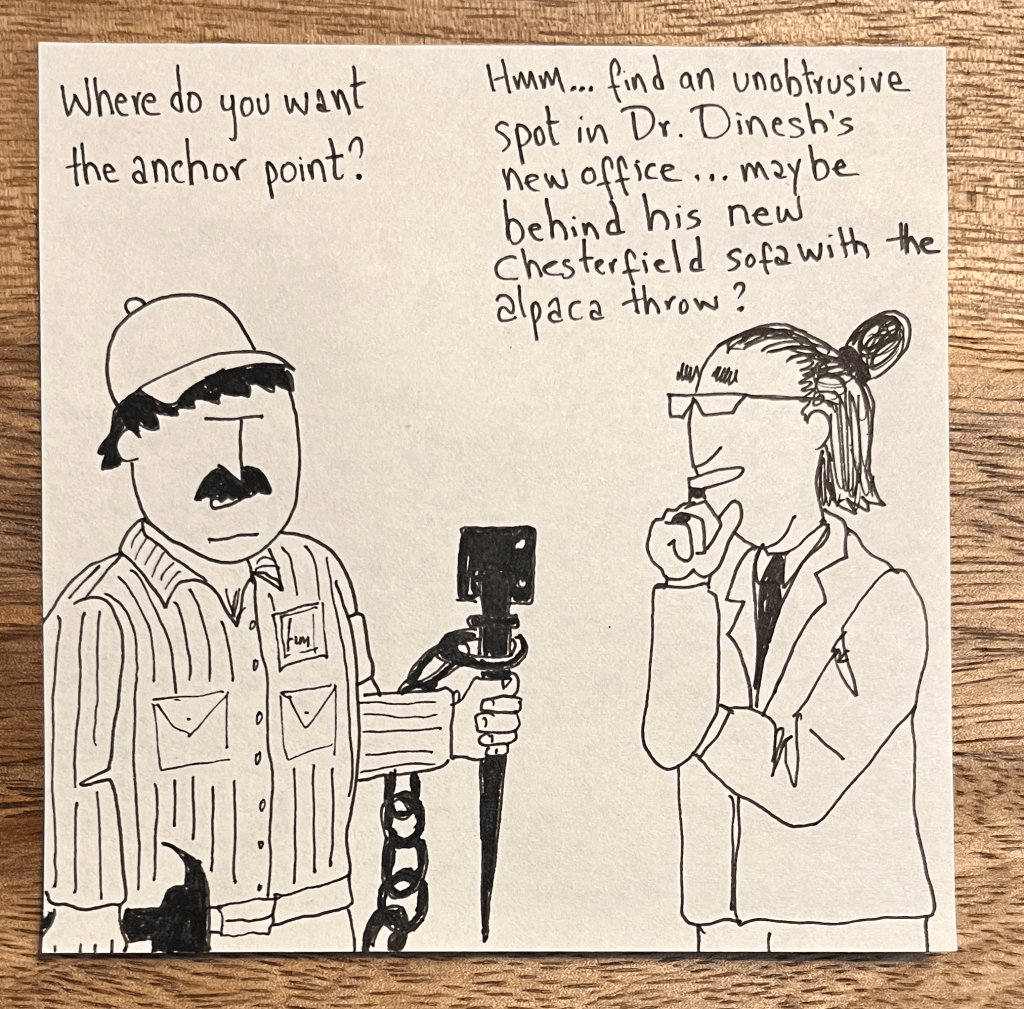 Where do you want
the anchor point?
Hmm... find an unobtrusive
spot in Dr. Dinesh's
new office... maybe
behind his new
Chesterfield sofa with the
alpaca throw?